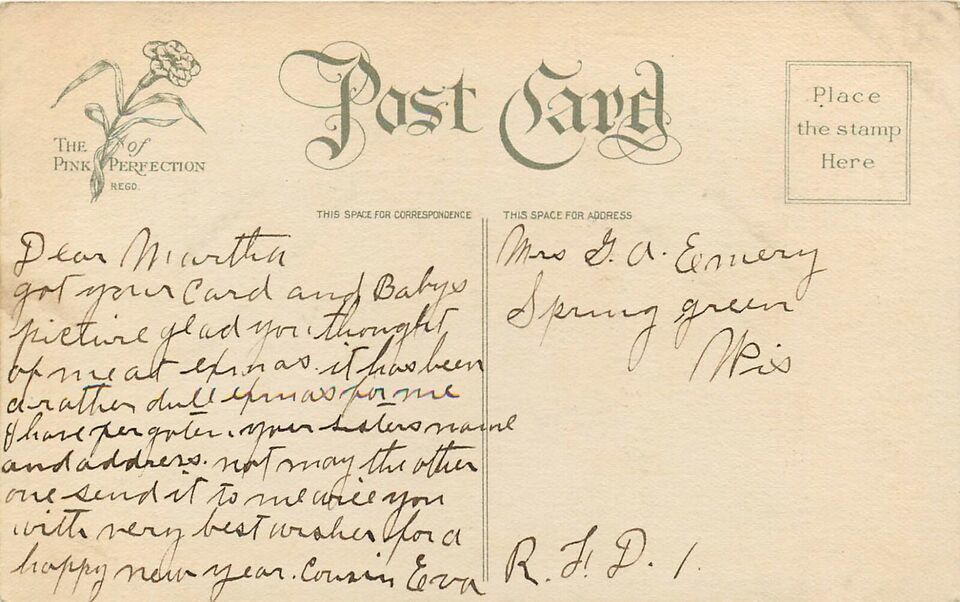 The Pink of Perfection
REGD.
Post Card
Place
the stamp
Here
THIS SPACE FOR CORRESPONDENCE
THIS SPACE FOR ADDRESS
Dear Martha
got your Card and Babys
picture glad you thought
of me at exmas. it has been
a rather dull exmas for me
I have forgoten. your sisters name
and address. not may the other
one send it to me will you
with very best wishes for a
happy new year. Cousin Eva
Mrs G. A. Emery
Spring green
Wis
R. F. D. 1.